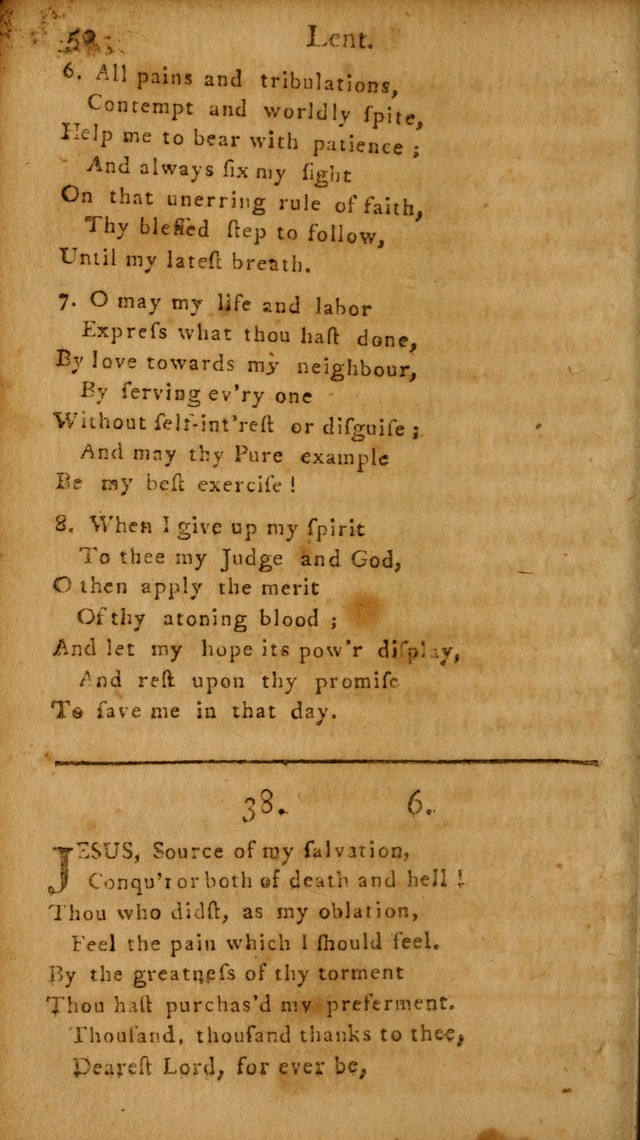 52 Lent.
6. All pains and tribulations,
Contempt and worldly ſpite,
Help me to bear with patience ;
And always fix my ſight
On that unerring rule of faith,
Thy bleſſed ſtep to follow,
Until my lateſt breath.
7. O may my life and labor
Expreſs what thou haſt done,
By love towards my neighbour,
By ſerving ev'ry one
Without ſelf-int'reſt or diſguiſe ;
And may thy Pure example
Be my beſt exerciſe !
8. When I give up my ſpirit
To thee my Judge and God,
O then apply the merit
Of thy atoning blood ;
And let my hope its pow'r diſplay,
And reſt upon thy promiſe
To ſave me in that day.
38. 6.
JESUS, Source of my ſalvation,
Conqu'ror both of death and hell !
Thou who didſt, as my oblation,
Feel the pain which I ſhould feel.
By the greatneſs of thy torment
Thou haſt purchas'd my preferment.
Thouſand, thouſand thanks to thee,
Deareſt Lord, for ever be,